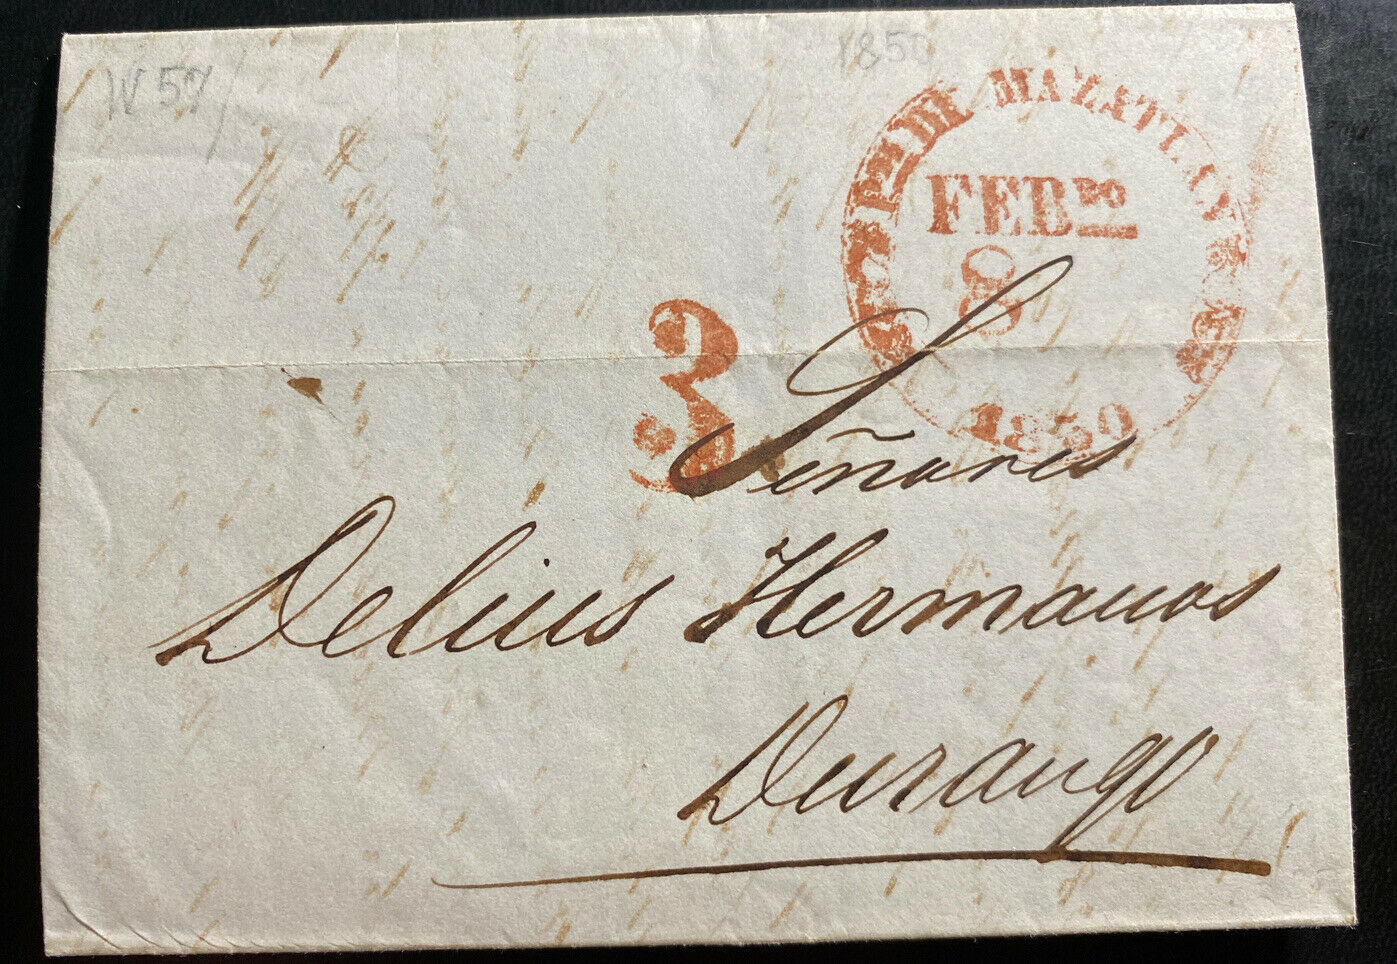 1850
MAZATLAN
FEBRO
8
3
1850
Señores
Delius Hermanos
Durango